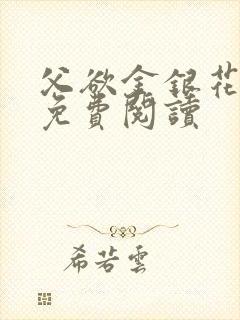 父欲金銀花
免費閱讀
希若雲